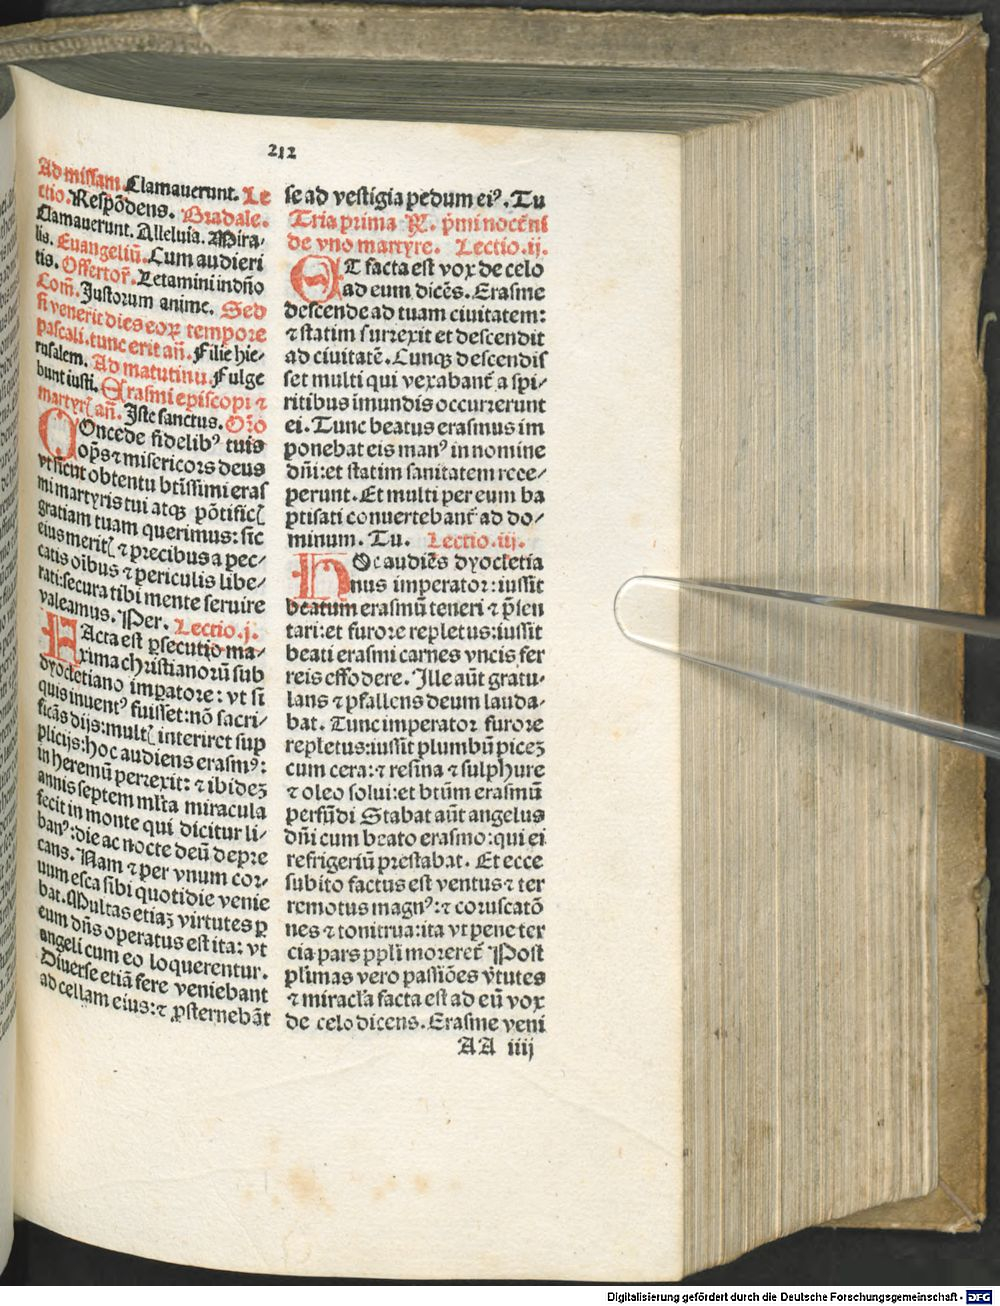 212
Ad missam. Clamauerunt. Le
ctio. Respōdens. Gradale.
Clamauerunt. Alleluia. Mira⸗
lis. Euangeliū. Cum audieri
tis. Offertoꝝ. Letamini in dn̄o
Com̄. Justorum anime. Sed
si venerit dies eoꝝ tempore
pascali. tunc erit an̄. Filie hie⸗
rusalem. Ad matutinu. Fulge
bunt iusti. Erasmi episcopi ⁊
martyrꝭ an̄. Iste sanctus. Oro
COncede fidelibꝰ tuis
op̄s ⁊ misericors deus
vt sicut obtentu btīssimi eras
mi martyris tui atqꝫ pōtificꝭ
gratiam tuam querimus: sic
eius meritꝭ ⁊ precibus a pec⸗
catis oībus ⁊ periculis libe⸗
rati: secura tibi mente seruire
valeamus. Per. Lectio. j.
FActa est ꝑsecutio ma⸗
xima christianorū sub
dyocletiano imꝑatore: vt si
quis inuentꝰ fuisset: nō sacri⸗
ficās dijs: multꝭ interiret sup
plicijs: hoc audiens erasmꝰ:
in heremū perrexit: ⁊ ibideꝫ
annis septem ml̄ta miracula
fecit in monte qui dicitur li⸗
banꝰ: die ac nocte deū depre
cans. Nam ⁊ per vnum cor⸗
uum esca sibi quotidie venie
bat. Multas etiaꝫ virtutes ꝑ
eum dn̄s operatus est ita: vt
angeli cum eo loquerentur.
Diuerse etiā fere veniebant
ad cellam eius: ⁊ ꝓsternebāt
se ad vestigia pedum eiꝰ. Tu
Tria prima ℞. p̄mi nocc̄ni
de vno martyre. Lectio. ij.
ET facta est vox de celo
ad eum dicēs. Erasme
descende ad tuam ciuitatem:
⁊ statim surrexit et descendit
ad ciuitatē. Cunqꝫ descendis
set multi qui vexabant̄ a spi⸗
ritibus īmundis occurrerunt
ei. Tunc beatus erasmus im
ponebat eis manꝰ in nomine
dn̄i: et statim sanitatem rece⸗
perunt. Et multi per eum ba
ptisati conuertebant̄ ad do⸗
minum. Tu. Lectio. iij.
HOc audiēs dyocletia
nus imperator: iussit
beatum erasmū teneri ⁊ p̄sen
tari: et furore repletus: iussit
beati erasmi carnes vncis fer
reis effodere. Ille aūt gratu⸗
lans ⁊ psallens deum lauda⸗
bat. Tunc imperator furore
repletus: iussit plumbū piceꝫ
cum cera: ⁊ resina ⁊ sulphure
⁊ oleo solui: et btūm erasmū
perfūdi Stabat aūt angelus
dn̄i cum beato erasmo: qui ei
refrigeriū prestabat. Et ecce
subito factus est ventus ⁊ ter
remotus magnꝰ: ⁊ coruscatō
nes ⁊ tonitrua: ita vt pene ter
cia pars ppl̄i moreret̄ Post
pl̄imas vero passiōes v̄tutes
⁊ miracl̄a facta est ad eū vox
de celo dicens. Erasme veni
AA iiij
Digitalisierung gefördert durch die Deutsche Forschungsgemeinschaft - DFG